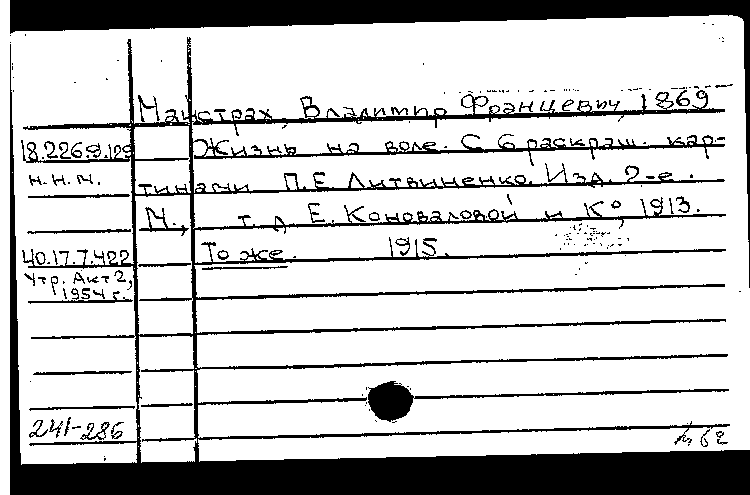 Майстрах, Владимир Францевич, 1869
18.226.9.129 Жизнь на воле. С 6 раскраш. кар-
н.н.м. тинами П.Е Литвиненко. Изд. 2-е.
М., т.д Е. Коноваловой и К°, 1913.
40.17.7.422 То же. 1915.
Утр. Акт 2,
1954 г.
241-286
62